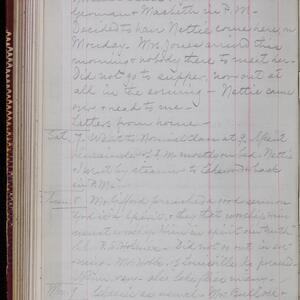 German & Macbeth in P.M.
Decided to have Nettie come here, on
Monday. Mrs. Jones arrived this
morning & nobody there to meet her.
Did not go to supper, nor out at
all in the evening - Nettie came
over & read to me -
Letters from home -
Sat. 7. Went to Normal class at 9. Spent
remainder of A.M. mostly in bed. Nettie
& I went by steamer to & back
in P.M.
Sun. 8 Mr. Gifford preached a good sermon
God is a Spirit, & they that worship him
must worship him in spirit & in truth
S.S. Did not go out in eve-
ning. Mr. of Louisville preached
Mon. 9. as usual. Mrs.